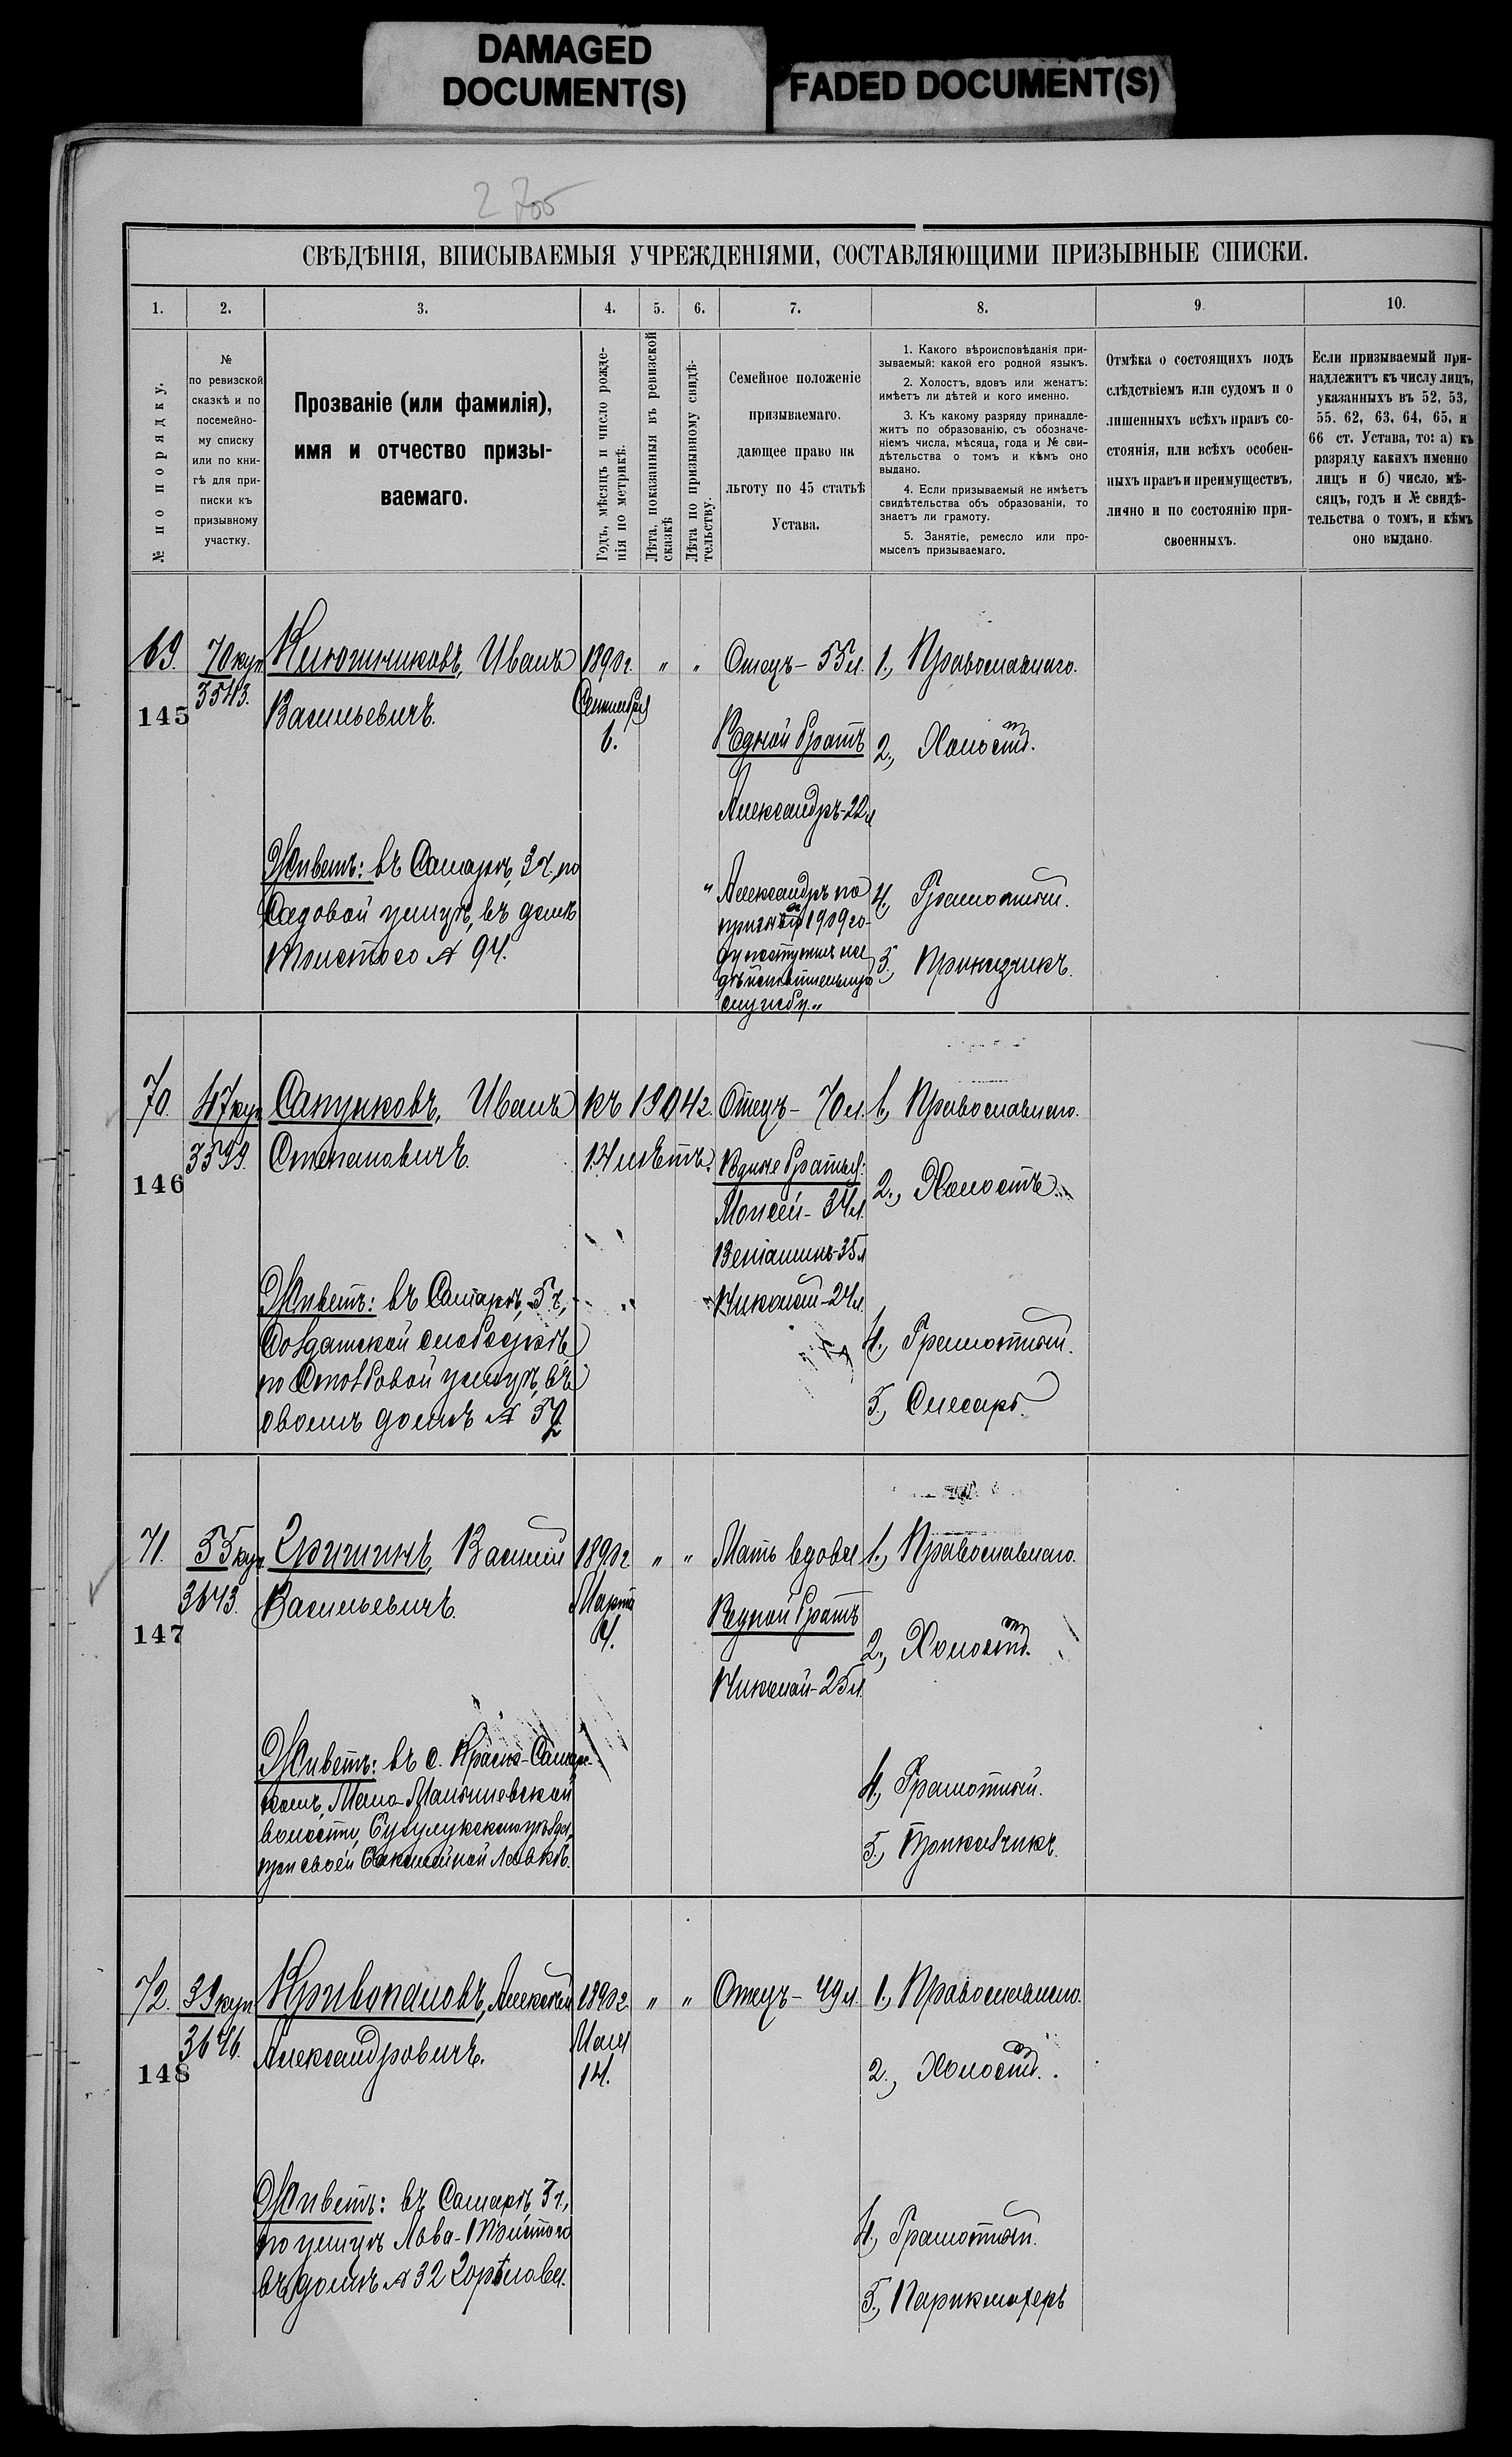 DAMAGED
DOCUMENT(S)
FADED DOCUMENT(S)
СВѢДѢНІЯ, ВПИСЫВАЕМЫЯ УЧРЕЖДЕНІЯМИ, СОСТАВЛЯЮЩИМИ ПРИЗЫВНЫЕ СПИСКИ.
1. 2. 3. 4. 5. 6. 7. 8. 9. 10.
№ по порядку.
№
по ревизской
сказкѣ и по
посемейно-
му списку
или по кни-
гѣ для при-
писки къ
призывному
участку.
Прозваніе (или фамилія),
имя и отчество призы-
ваемаго.
Годъ, мѣсяцъ и число рожде-
нія по метрикѣ.
Лѣта, показанныя въ ревизской
сказкѣ
Лѣта по призывному свидѣ-
тельству.
Семейное положеніе
призываемаго,
дающее право на
льготу по 45 статьѣ
Устава.
1. Какого вѣроисповѣданія при-
зываемый: какой его родной языкъ.
2. Холостъ, вдовъ или женатъ:
имѣетъ ли дѣтей и кого именно.
3. Къ какому разряду принадле-
житъ по образованію, съ обозначе-
ніемъ числа, мѣсяца, года и № сви-
дѣтельства о томъ и кѣмъ оно
выдано.
4. Если призываемый не имѣетъ
свидѣтельства объ образованіи, то
знаетъ ли грамоту.
5. Занятіе, ремесло или про-
мыселъ призываемаго.
Отмѣка о состоящихъ подъ
слѣдствіемъ или судомъ и о
лишенныхъ всѣхъ правъ со-
стоянія, или всѣхъ особен-
ныхъ правъ и преимуществъ,
лично и по состоянію при-
своенныхъ.
Если призываемый при-
надлежитъ къ числу лицъ,
указанныхъ въ 52, 53,
55, 62, 63, 64, 65, и
66 ст. Устава, то: а) къ
разряду какихъ именно
лицъ и б) число, мѣ-
сяцъ, годъ и № свидѣ-
тельства о томъ, и кѣмъ
оно выдано.
69.
70 куп
3543.
145
Ключниковъ, Иванъ
Васильевичъ.
Живетъ: въ Самарѣ, 3 ч., по
Садовой улицѣ, въ домѣ
Толстого № 94.
1890 г.
Сентября
6.
" "
Отецъ - 55 л.
Родной братъ
Александръ - 22 л
"Александръ по
призыву 1909 го-
ду поступилъ на
дѣйствительную
службу."
1., Православнаго.
2., Холостъ.
4., Грамотный.
5., Приказчикъ.
70.
47 куп
3599.
146
Сапунковъ, Иванъ
Степановичъ.
Живетъ: въ Самарѣ, 5 ч.,
Солдатской слободкѣ
по Столбовой улицѣ, въ
своемъ домѣ № 52
къ 1904 г.
14 лѣтъ.
Отецъ - 70 л.
Родные братья:
Моисей - 34 л.
Веніаминъ - 35 л
Николай - 24 л.
1., Православнаго.
2., Холостъ.
4., Грамотный.
5., Слесарь.
71.
55 куп
3643.
147
Гришинъ, Василій
Васильевичъ.
Живетъ: въ с. Красно-Самар-
комъ, Мало-Малышевской
волости, Бузулукскаго уѣзда,
при своей бакалейной лавкѣ.
1890 г
Марта
" "
Мать вдова
Родной братъ
Николай - 25 л.
1., Православнаго.
2., Холостъ.
4., Грамотный.
5., Приказчикъ.
72.
39 куп
3646.
148
Кривопаловъ, Алексѣй
Александровичъ.
Живетъ: въ Самарѣ, 3 ч.,
по улицѣ Льва-Толстого
въ домѣ № 32 Горѣлова.
1890 г.
Мая
14.
" "
Отецъ - 49 л.
1., Православнаго.
2., Холостъ.
4., Грамотный.
5., Парикмахеръ